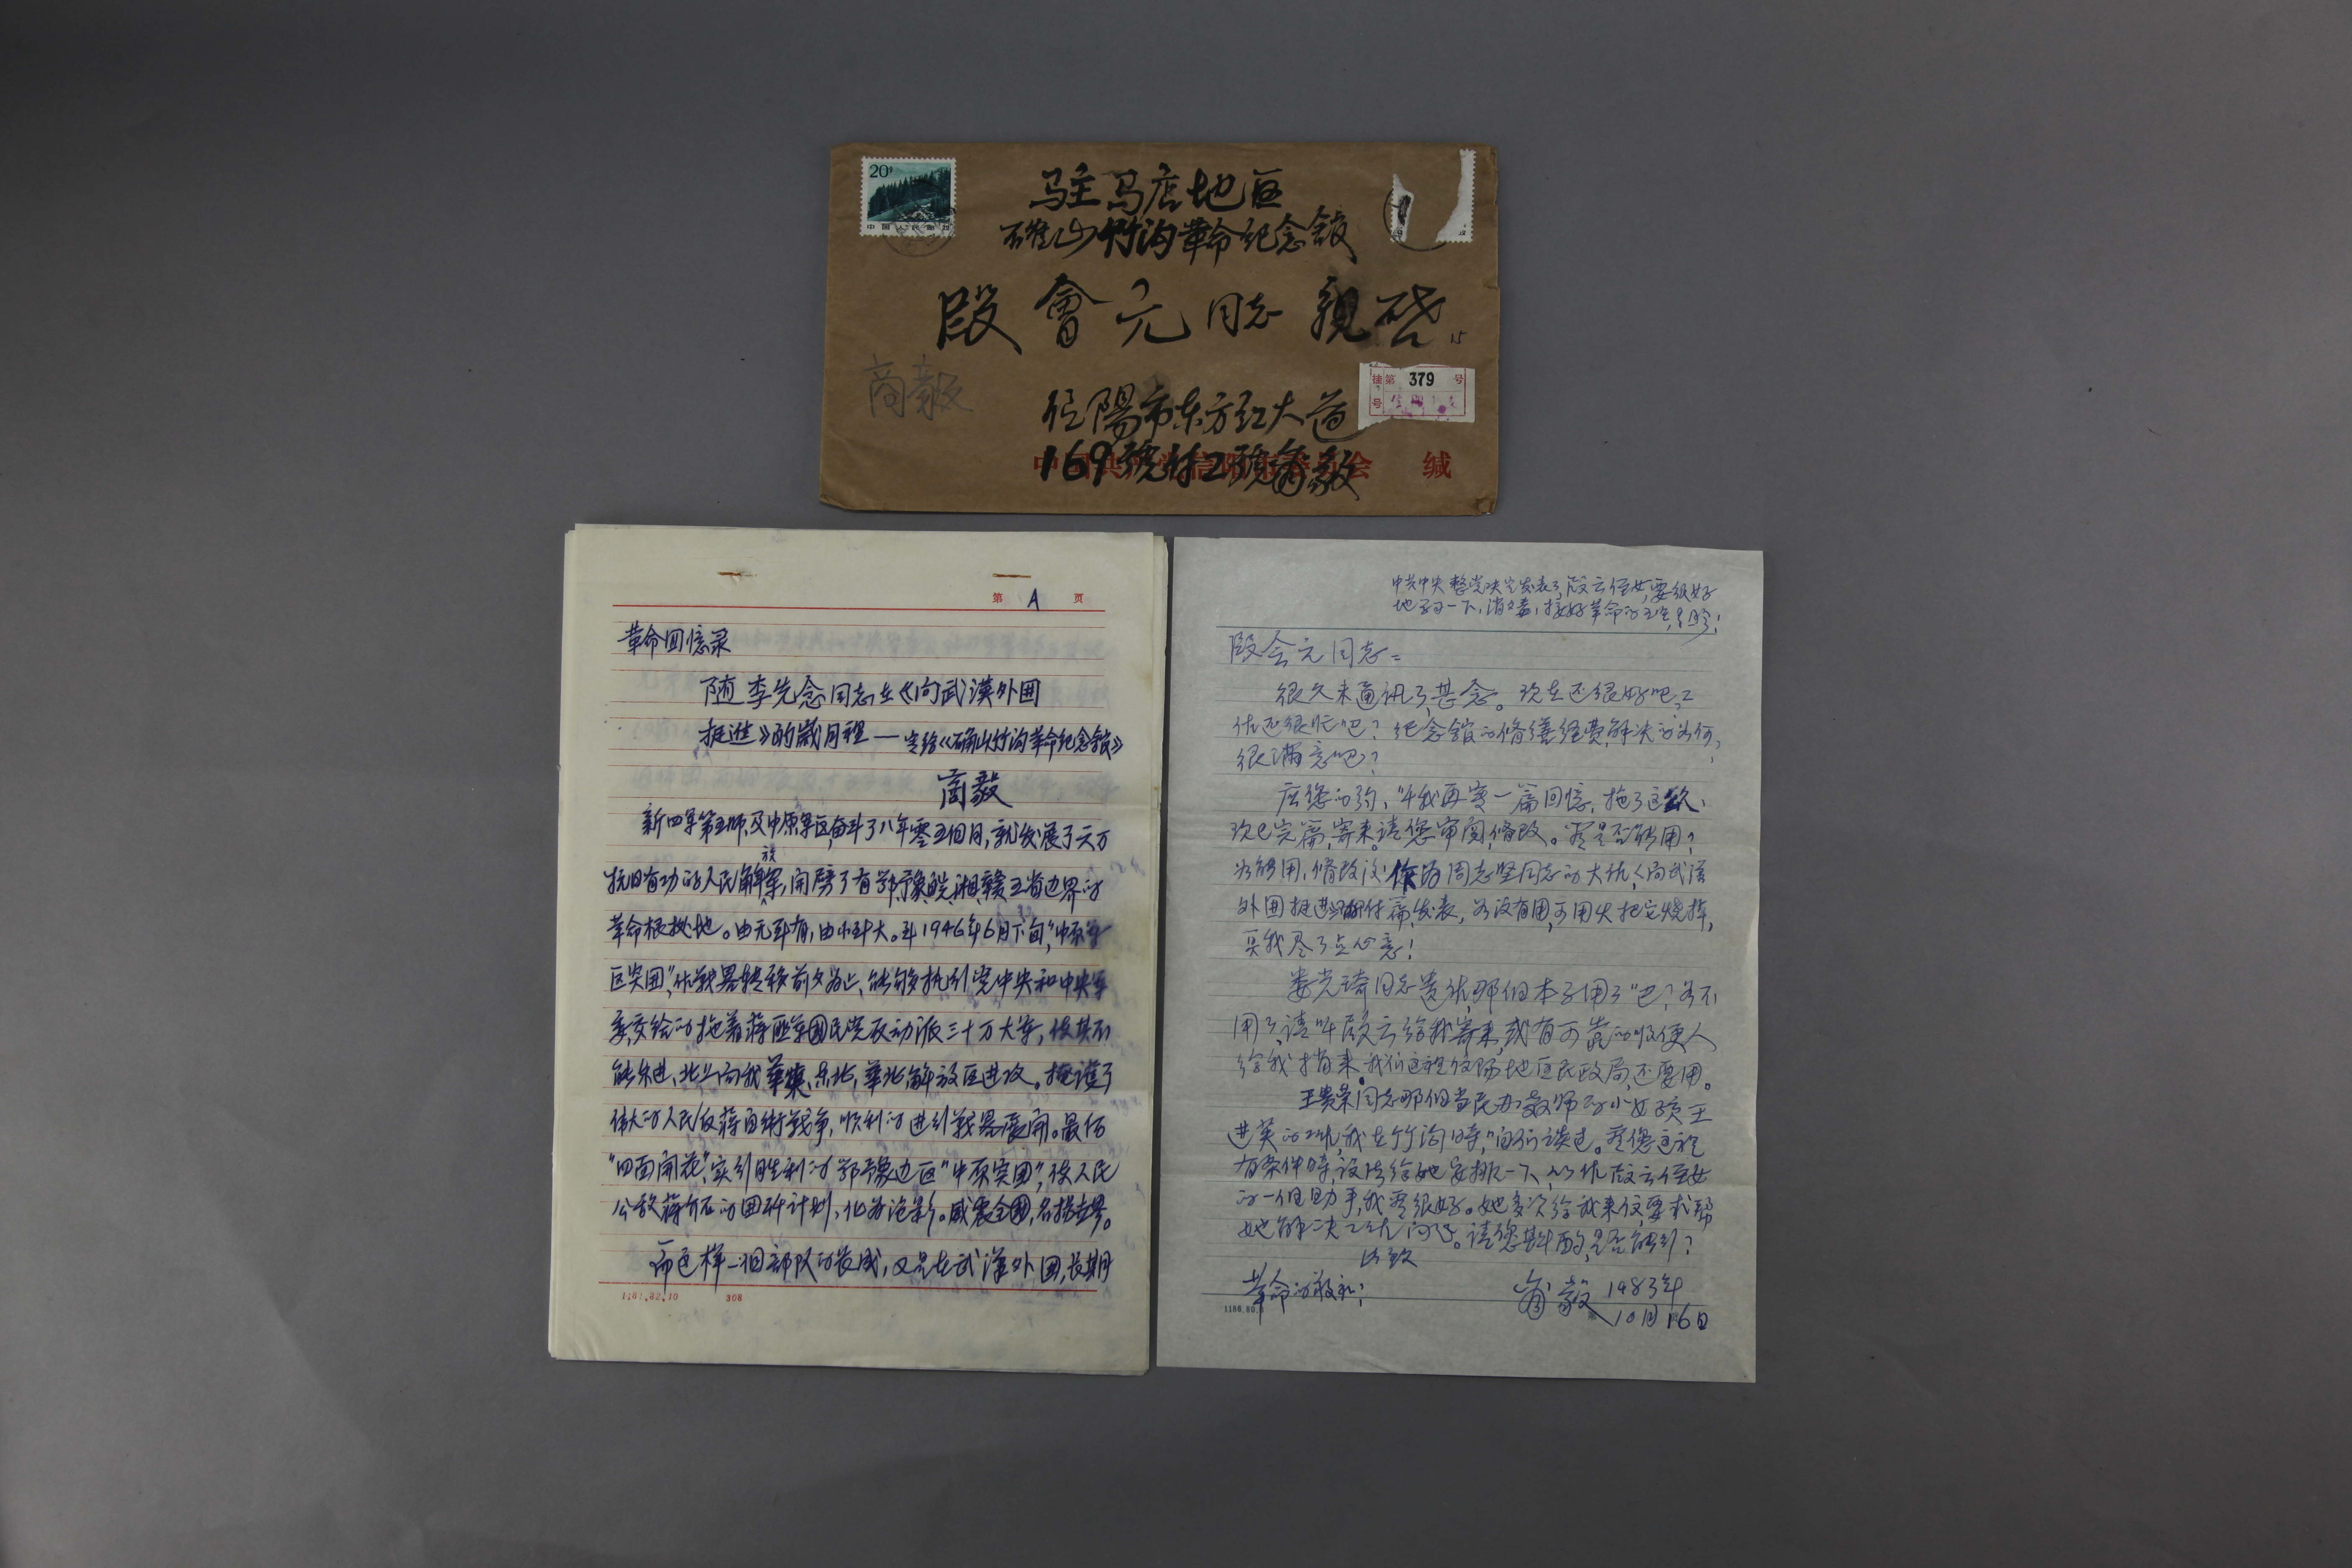 20分
中国人民邮政
驻马店地区
确山竹沟革命纪念馆
段會元同志 親啓
15
商毅
挂号 第 379 号
信陽市东方红大道
169號付2號商毅
中国共产党信阳市委员会 缄
第 A 页
革命回憶录
随李先念同志在《向武漢外围
挺进》的歲月裡——寄给《确山竹沟革命纪念馆》
商毅
新四军第五师及中原军区奋斗了八年零五個月,就发展了六万
抗日有功的人民解放军,開辟了有鄂、豫、皖、湘、赣五省边界的
革命根据地。由无到有,由小到大。到1946年6月下旬,"中原军
区突围",作戰畧转移前夕为止、能够执行党中央和中央军
委交给的拖着蒋匪军国民党反动派三十万大军,使其不
能东进、北上向我華東、东北,華北解放区进攻。掩護了
伟大的人民反蒋自衛戰争,顺利的进行戰畧展開。最后
"四面開花",实行胜利的鄂豫边区"中原突围",使人民
公敌蒋介石的围歼计划,化为泡影。威震全國,名揚世界。
而这样一個部队的长成,又是在武漢外围,长期
1181.82.10 308
中共中央整党决定发表了,段云侄女,要很好
地学习一下,
段会元同志:
很久未通讯了,甚念。现在还很好吧?工
作还很忙吧?纪念馆的修缮经费解决的如何,
很满意吧?
应您的约,叫我再寫一篇回憶,拖了这久,
现已完篇,寄来请您审阅,修改。看是否能用?
如能用,修改後,作为周志坚同志的大作《向武漢
外围挺进》的付篇发表,如没有用,可用火把它烧掉,
只我尽了点心意!
娄光琦同志遗作那個本子用了吧?如不
用了,请叫段云给我寄来,或有可靠的顺便人
给我捎来。我们这里信阳地区民政局,还要用。
王贵荣同志那個当民办教师的小女孩王
进英的工作,我在竹沟時,自们谈过。看您这裡
有条件時,设法给她安排一下,以作段云侄女
的一個助手,我看很好。她多次给我来信,要求帮
她解决工作问题。请您斟酌,是否能行?
此致
革命的敬礼!
商毅 1983年
10月16日
1186.80.